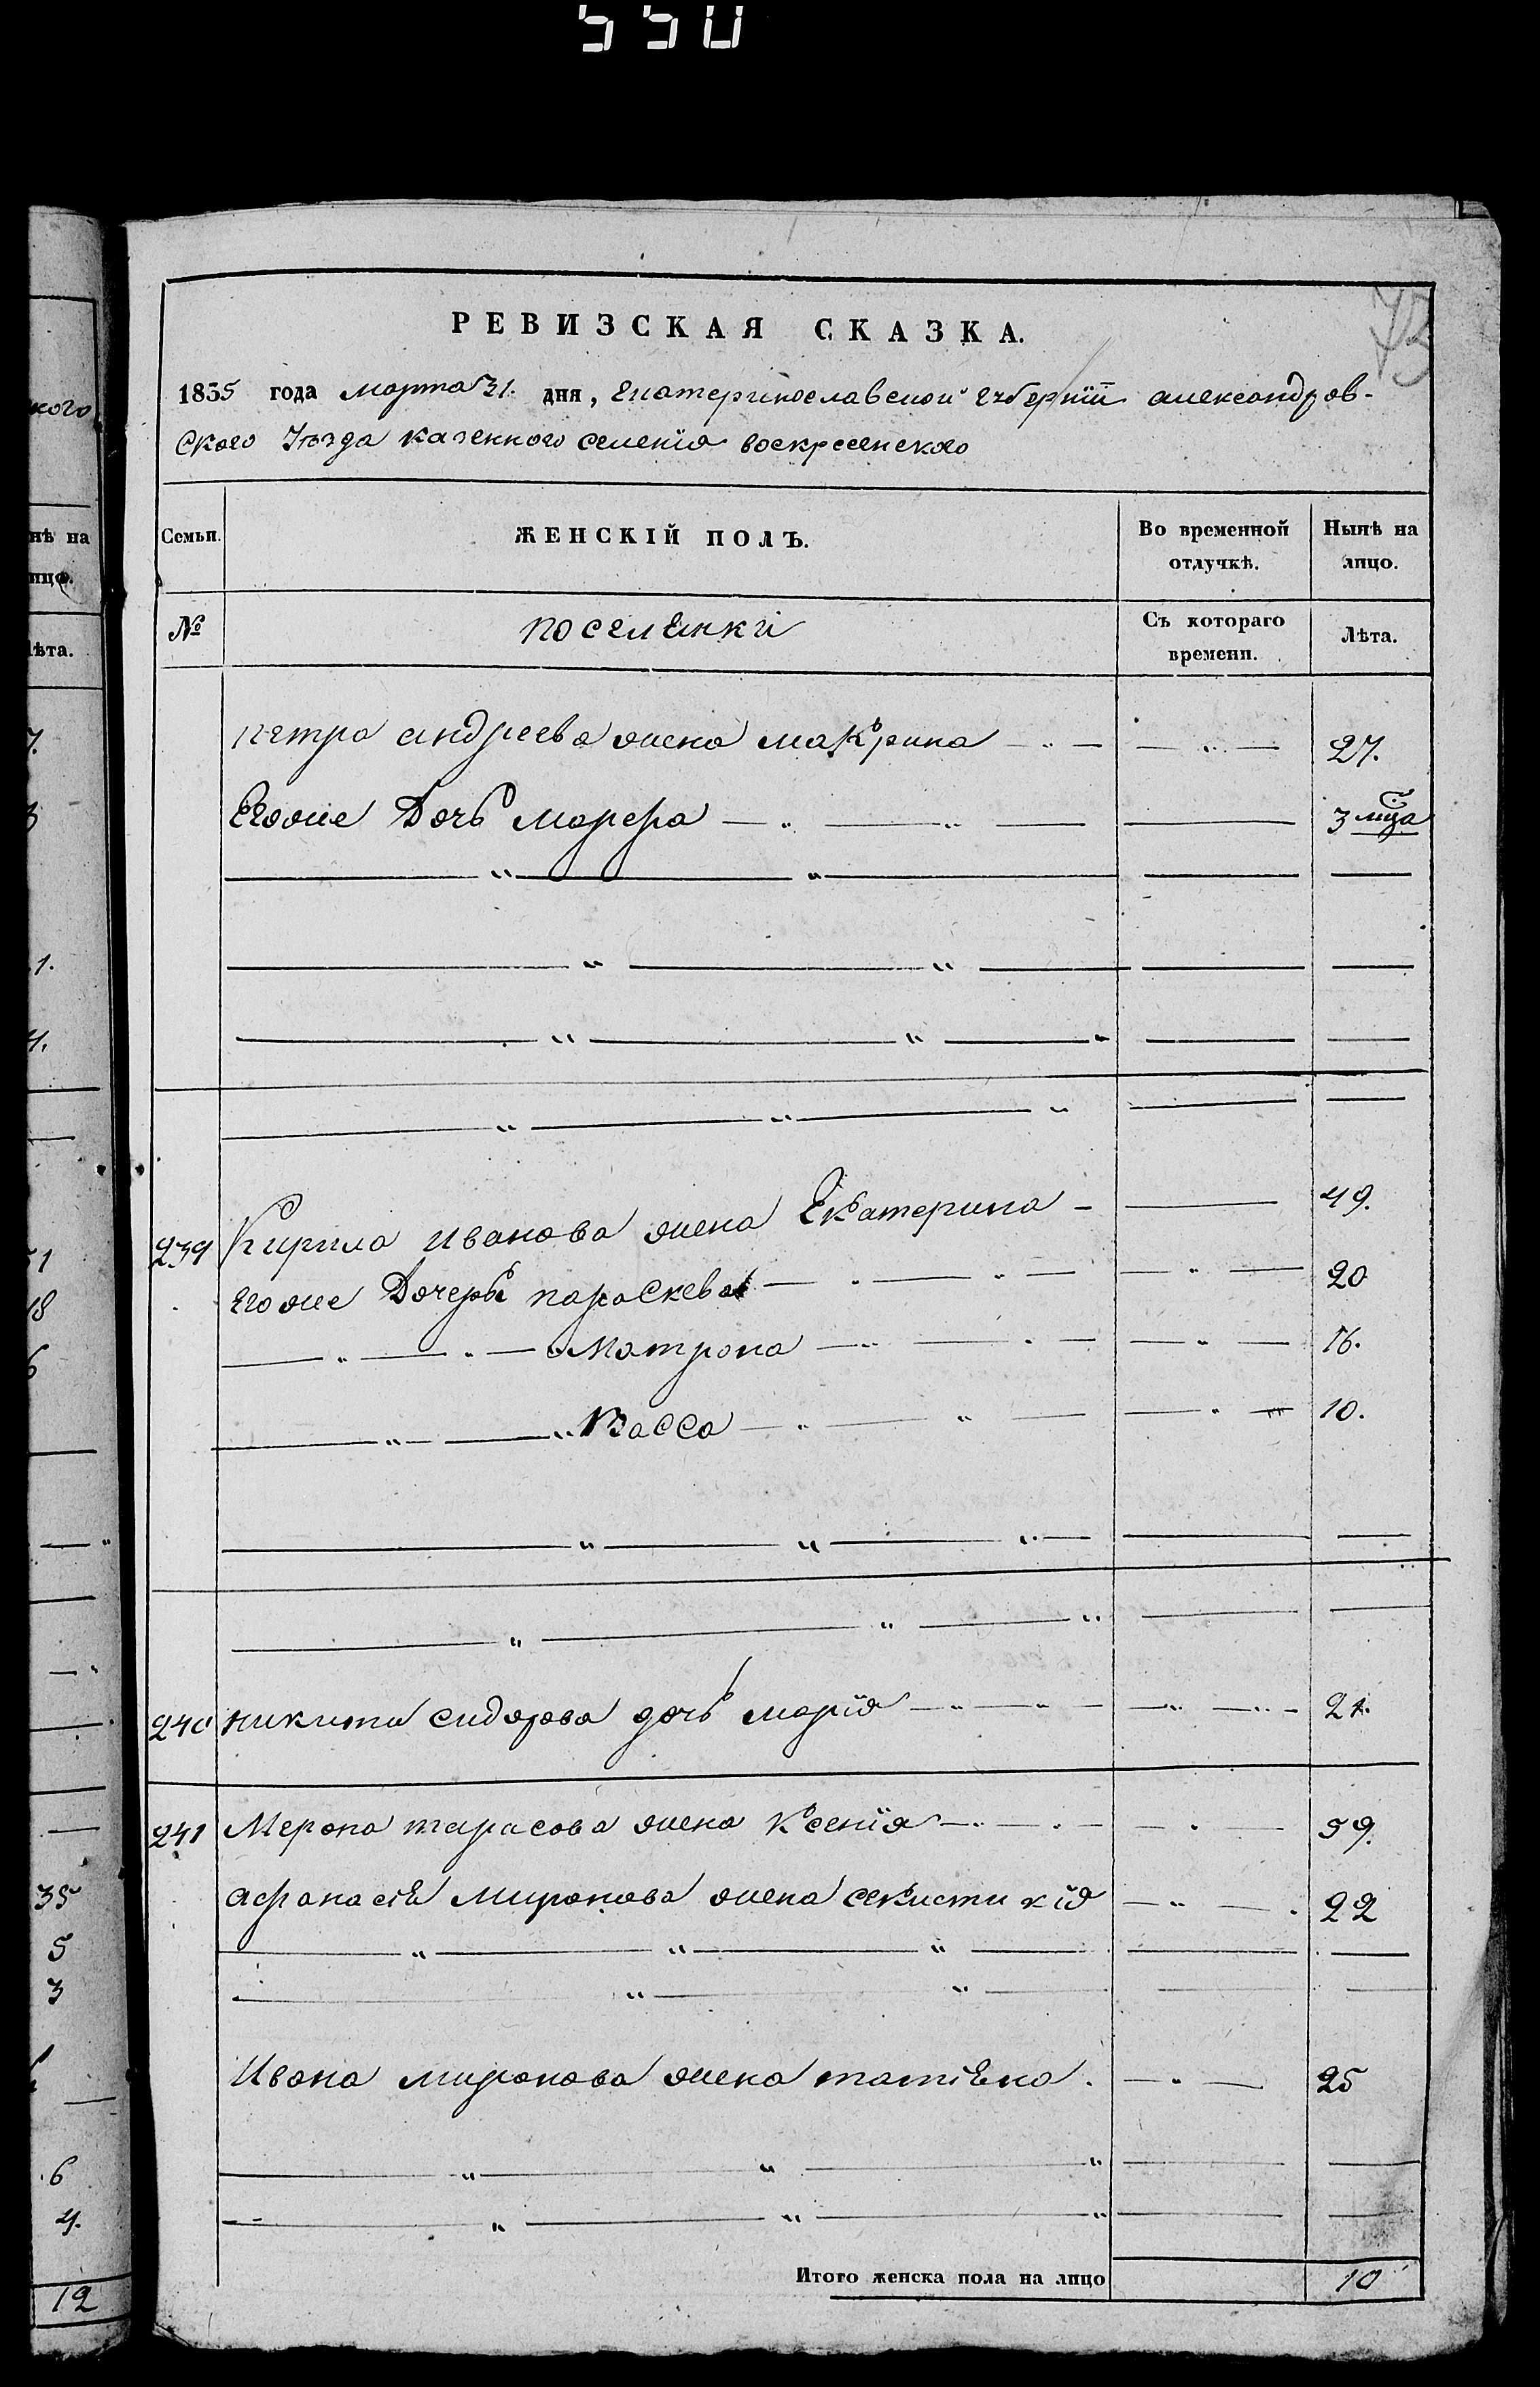 550
73
РЕВИЗСКАЯ СКАЗКА.
1835 года марта 31. дня, Екатеринославской губернїи александров-
ского Уѣзда казенного селенїя воскресенского
Семьи. ЖЕНСКІЙ ПОЛЪ. Во временной отлучкѣ. Ныпѣ на лицо.
№ поселенки Съ котораго времени. Лѣта.
петра андреева жена макрина 27.
Егоже Дочь марфа 3 мца
239 Кирила иванова жена Екатерина 49.
егоже Дочеры параскева 20
Матрона 16.
Васса 10.
240 никиты сидорова дочь марїя 21.
241 Мерона тарасова жена Ксенїя 59.
афанасїя миронова жена 22
Ивана миронова жена татїяна. 25
Итого женска пола на лицо 10
кого
нѣ на
лицо.
лѣта.
35
5
3
6
4.
12